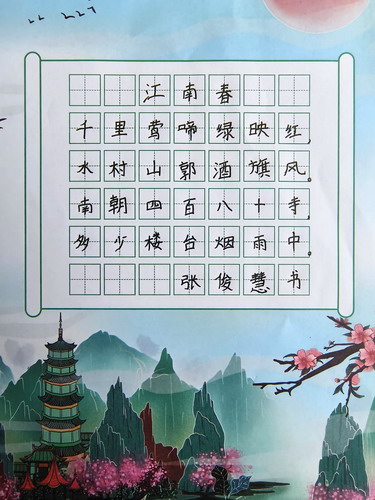 江南春
千里莺啼绿映红,
水村山郭酒旗风。
南朝四百八十寺,
多少楼台烟雨中。
张俊慧书